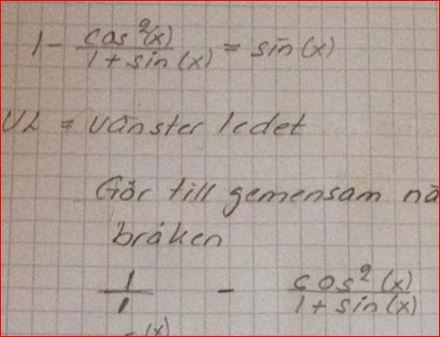 1 - cos²(x) / 1 + sin(x) = sin(x)
VL = vänster ledet
Gör till gemensam
bråken
1 / 1 - cos²(x) / 1 + sin(x)